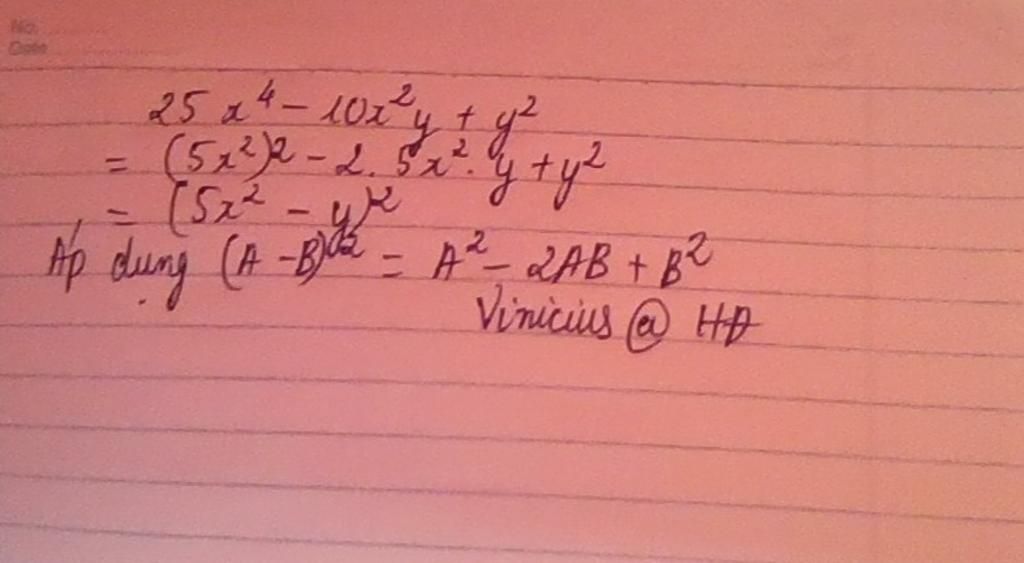 No.
Date
25 x⁴ - 10x²y + y²
= (5x²)² - 2. 5x². y + y²
= (5x² - y)²
Áp dụng (A - B)² = A² - 2AB + B²
Vinicius @ HĐ